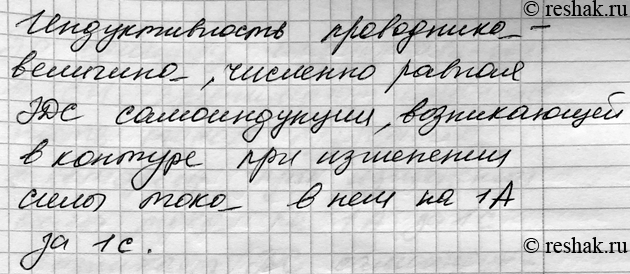 © reshak.ru
Индуктивность проводника -
величина, численно равная
ЭДС самоиндукции, возникающей
в контуре при изменении
силы тока в нем на 1А
за 1с.
© reshak.ru